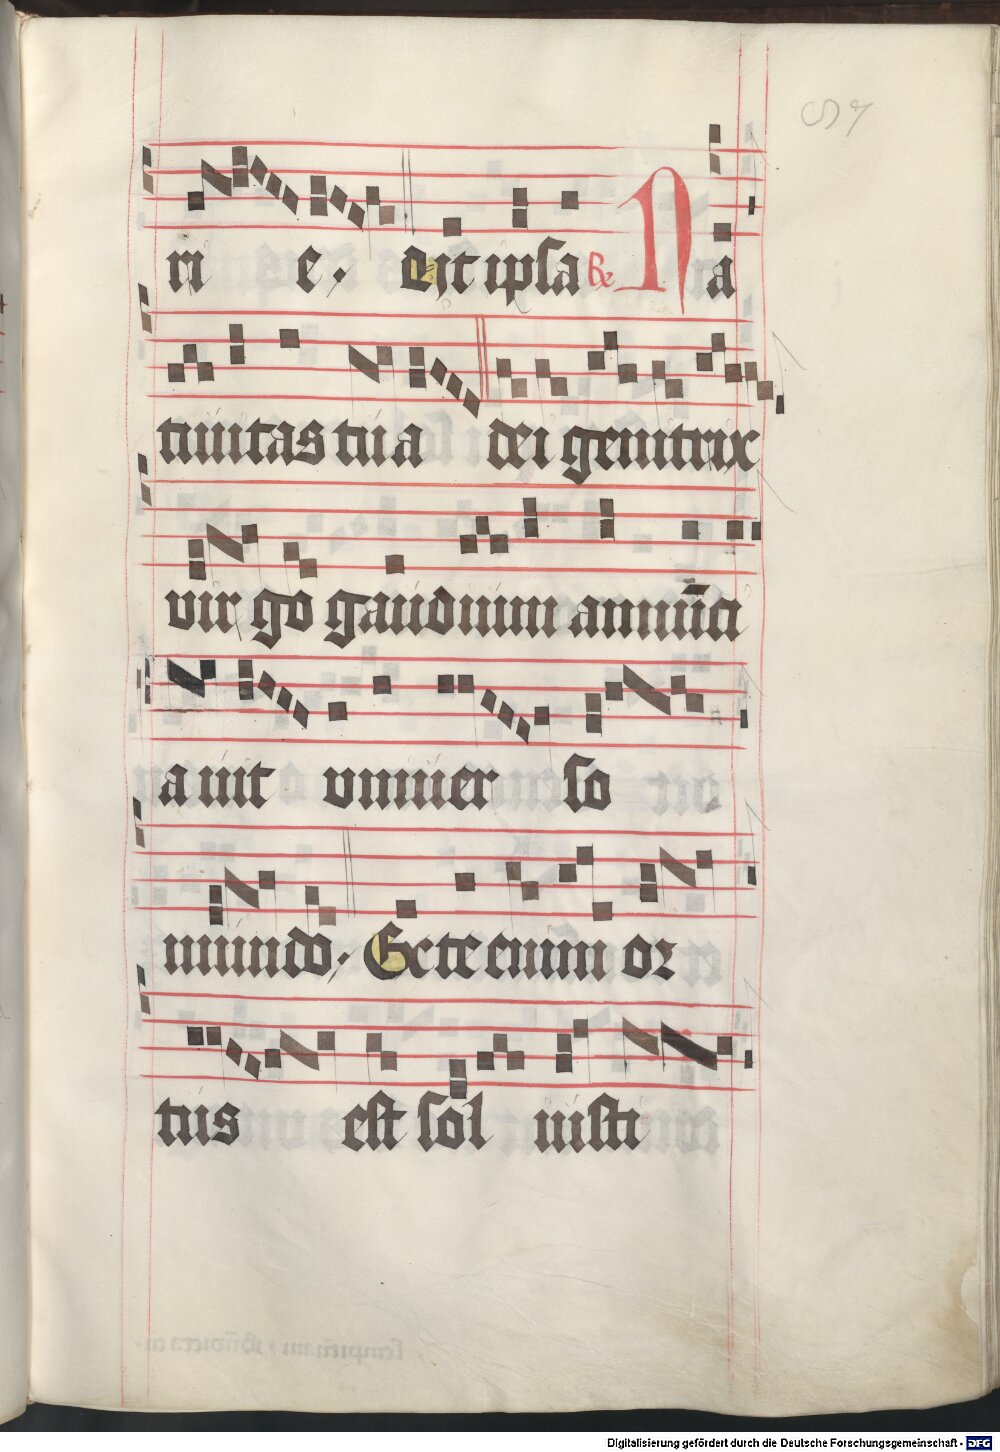 ri e · Vit ipsa R Na
tiuitas tua dei genitrix
virgo gaudium annūci
auit vniuer so
mundo · Ex te enim or
tus est sol iusti
Digitalisierung gefördert durch die Deutsche Forschungsgemeinschaft - DFG